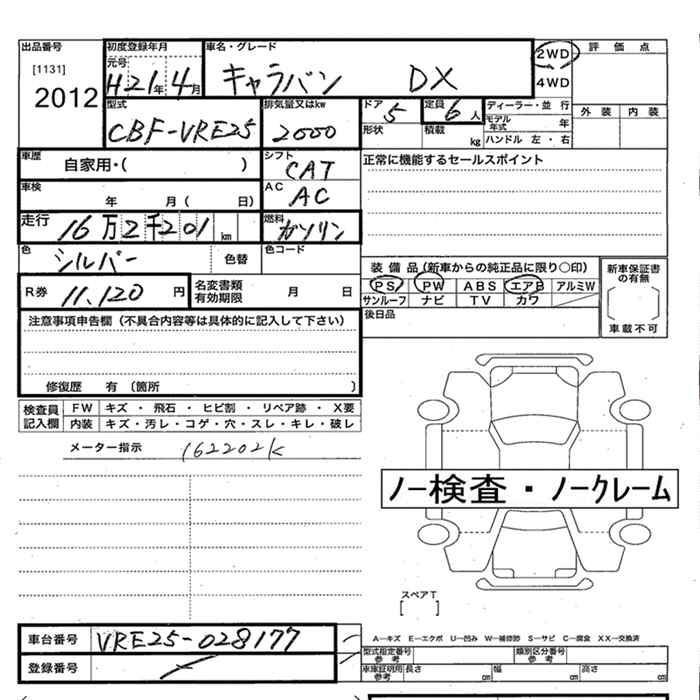 出品番号 初度登録年月 車名・グレード 2WD 評価点
[1131] 元号
2012 H21年4月 キャラバン DX 4WD
型式 排気量又はkw ドア 5 定員 6人 ディーラー・並行 外装 内装
CBF-VRE25 2000 形状 積載 kg モデル年式 年
ハンドル 左・右
車歴 自家用・( ) シフト CAT 正常に機能するセールスポイント
車検 年 月( 日) AC AC
走行 16万2千201km 燃料 ガソリン
色 シルバー 色替 色コード
装備品(新車からの純正品に限り○印) 新車保証書の有無
R券 11.120円 名変書類有効期限 月 日 PS PW ABS エアB アルミW
サンルーフ ナビ TV カワ
注意事項申告欄(不具合内容等は具体的に記入して下さい) 後日品 車載不可
修復歴 有(箇所 )
検査員記入欄 FW キズ・飛石・ヒビ割・リペア跡・X要
内装 キズ・汚レ・コゲ・穴・スレ・キレ・破レ
メーター指示 162202K
ノー検査・ノークレーム
スペアT
[ ]
車台番号 VRE25-028177 A―キズ E―エクボ U―凹み W―補修跡 S―サビ C―腐食 XX―交換済
登録番号 型式指定番号 参考 類別区分番号 参考
車庫証明用 参考 長さ cm 幅 cm 高さ cm